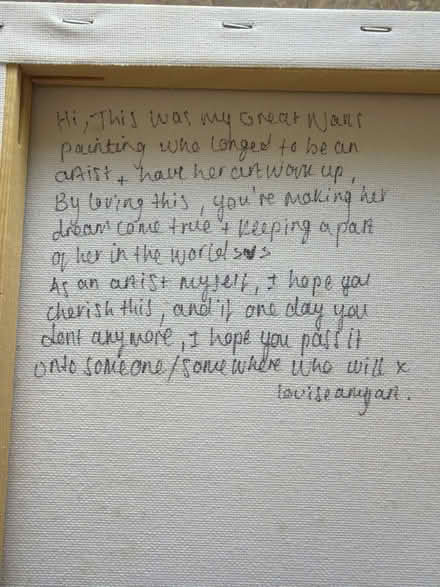 Hi, This was my Great Nans
painting who longed to be an
artist + have her artwork up,
By loving this, you're making her
dream come true + keeping a part
of her in the world
As an artist myself, I hope you
cherish this, and if one day you
dont anymore, I hope you pass it
onto someone/somewhere who will x